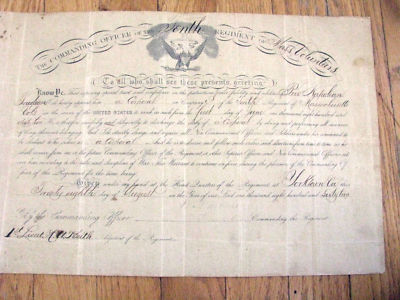 THE COMMANDING OFFICER OF THE Tenth REGIMENT OF Mass Volunteers
To all who shall see these presents, greeting:
Know Ye, that reposing special trust and confidence in the patriotism, valor, fidelity and abilities of
I do hereby appoint him a Corporal in Company of the Tenth Regiment of Massachusetts
Vols in the service of the UNITED STATES to rank as such from the first day of June one thousand eight hundred and
sixty two He is therefore carefully and diligently to discharge the duty of a Corporal by doing and performing all manner
of things thereunto belonging. And I do strictly charge and require all Non Commissioned Officers and Soldiers under his command to
be obedient to his orders as a Corporal And he is to observe and follow such orders and directions from time to time as he
shall receive from me or the future Commanding Officer of the Regiment or other Superior Officers and Non Commissioned Officers set
over him according to the rules and discipline of War. This Warrant to continue in force during the pleasure of the Commanding Officer
of the Regiment for the time being.
Given under my hand at the Head Quarters of the Regiment at Yorktown Va this
Twenty eighth day of August in the Year of our Lord one thousand eight hundred and sixty two
By the Commanding Officer
Commanding the Regiment
1st Lieut Adjutant of the Regiment